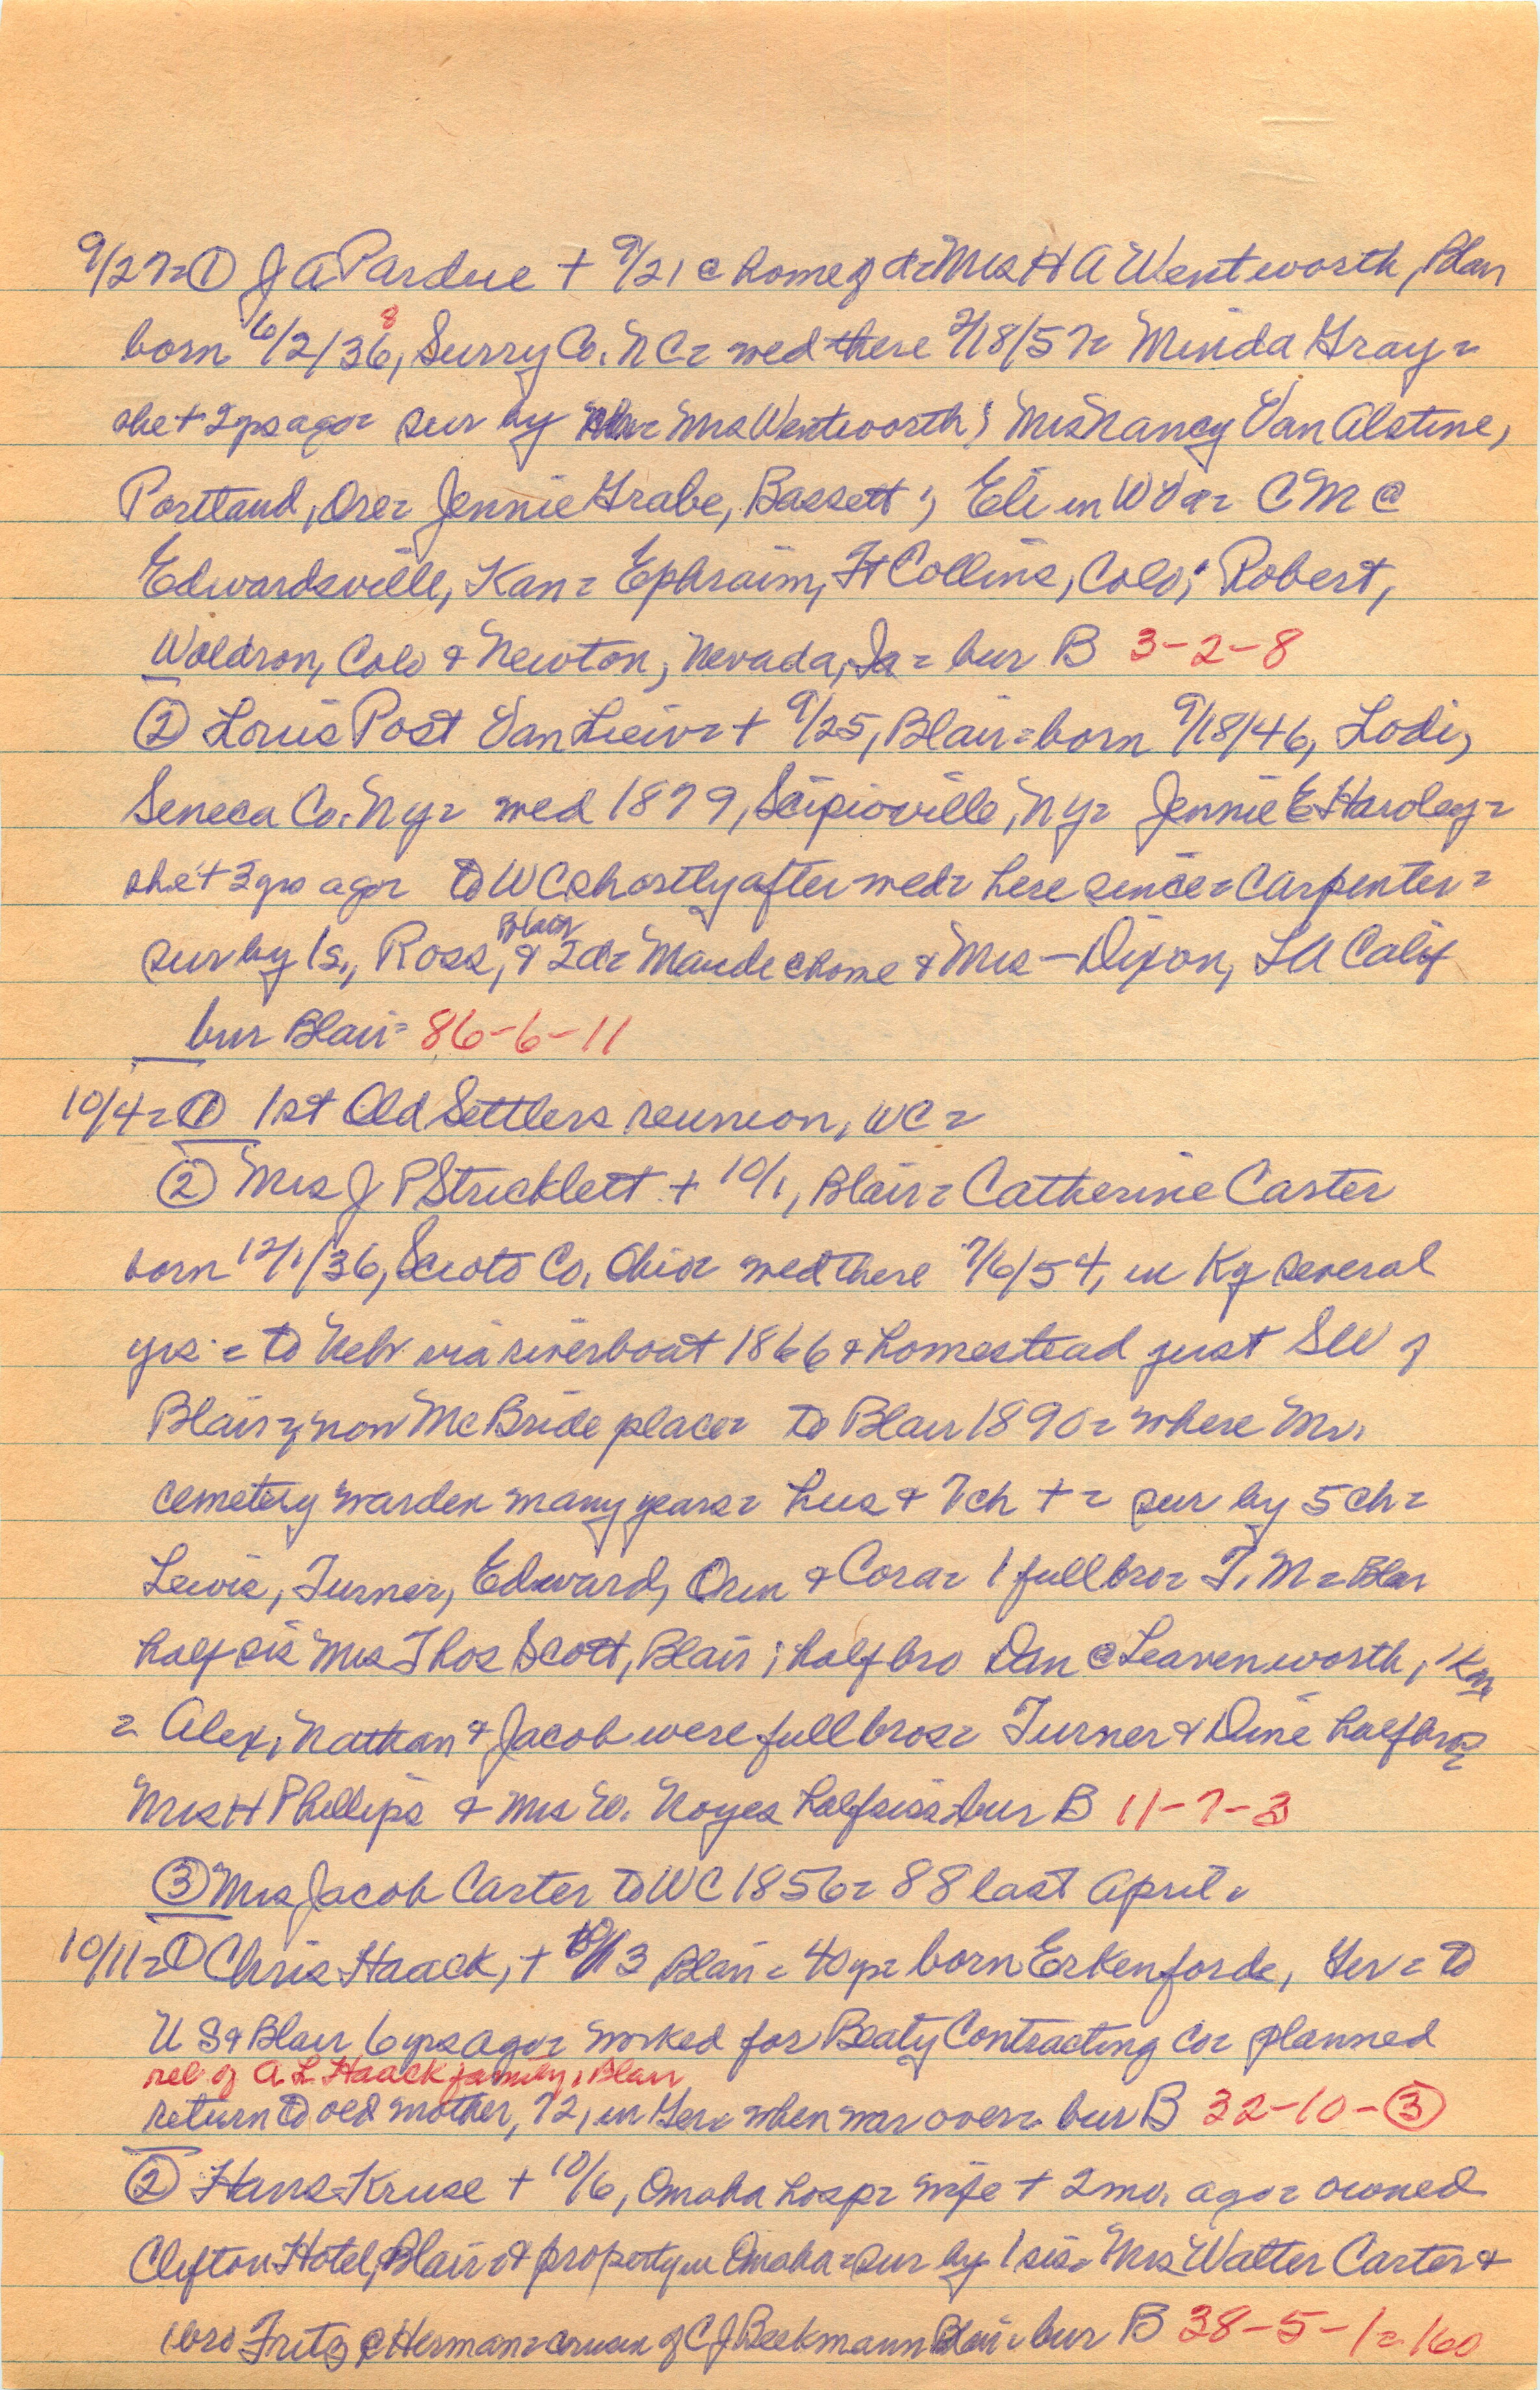 9/27= ① J A Pardue + 9/21 @ home of d= Mrs H A Wentworth, Blair
born 6/2/36, 8 Surry Co. NC= wed there 2/18/57= Minda Gray=
she + 2 yrs ago= sur by Mrs Wentworth; Mrs Nancy Van Alstine,
Portland, Ore= Jennie Grabe, Bassett; Eli in W C M @
Edwardsville, Kan= Ephraim, Ft Collins, Colo; Robert,
Woldron, Colo & Newton, Nevada, Ia= bur B 3-2-8
② Louis Post Van + 9/25, Blair= born 9/18/46, Lodi,
Seneca Co. Ny= wed 1879, Scipioville, Ny= Jennie E
she + 3 yrs ago= to WC shortly after wed= here since= Carpenter=
sur by 1 s., Ross, Blair & 2 d= Maude @ home & Mrs — Dixon, LA Calif
bur Blair= 86-6-11
10/4= ① 1st Old Settlers reunion, WC=
② Mrs J P Stricklett + 10/1, Blair= Catherine Carter
born 12/1/36, Scioto Co, Ohio= wed there 7/6/54, in Ky several
yrs= to Nebr via riverboat 1866 & homestead just SW of
Blair= now McBride place= to Blair 1890= where Mr.
cemetery warden many years= hus & 7 ch += sur by 5 ch=
Lewis, Turner, Edward, Oren & Cora= 1 full bro= T. M= Blair
half sis Mrs Thos Scott, Blair; half bro Dan @ Leavenworth, Kan
= Alex, Nathan & Jacob were full bros= Turner & half bros
Mrs H Phillips & Mrs W. Noyes half sis= bur B 11-7-3
③ Mrs Jacob Carter to WC 1856= 88 last April=
10/11= ① Chris Haack, + Blair= 40 yr= born Erkenforde, Ger= to
US & Blair 6 yrs ago= worked for Beaty Contracting Co= planned
rel of A L Haack family, Blair
return to old mother, 72, in Ger= when war over= bur B 32-10-③
② Hans Kruse + 10/6, Omaha hosp= wife + 2 mo. ago= owned
Clifton Hotel, Blair & property in Omaha= sur by 1 sis= Mrs Walter Carter &
1 bro Fritz @ Herman= cousin of C J Beekmann Blair= bur B 38-5-1= 160